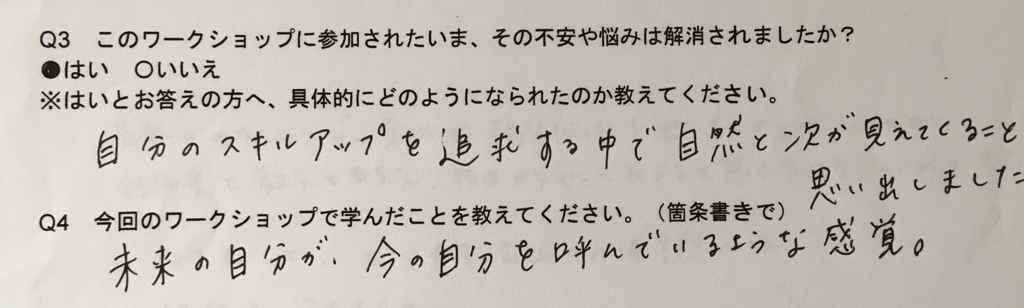 Q3 このワークショップに参加されたいま、その不安や悩みは解消されましたか？
●はい ○いいえ
※はいとお答えの方へ、具体的にどのようになられたのか教えてください。
自分のスキルアップを追求する中で自然と次が見えてくること
思い出しました
Q4 今回のワークショップで学んだことを教えてください。（箇条書きで）
未来の自分が、今の自分を呼んでいるような感覚。